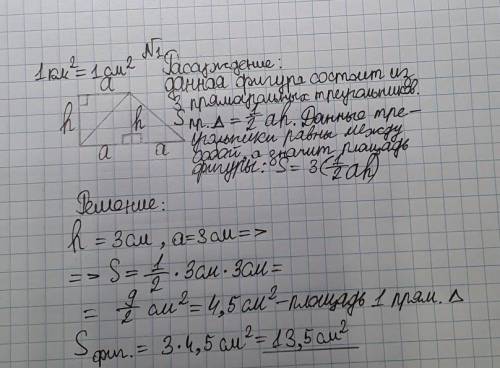 №1
1 км² = 1 см²
a
h
h
a
a
Рассуждение:
данная фигура состоит из
3 прямоугольных треугольников.
S пр. Δ = 1/2 ah. Данные тре-
угольники равны между
собой, а значит площадь
фигуры: S = 3(1/2 ah)
Решение:
h = 3 см, a = 3 см =>
=> S = 1/2 · 3 см · 3 см =
= 9/2 см² = 4,5 см² – площадь 1 прям. Δ
S фиг. = 3 · 4,5 см² = 13,5 см²